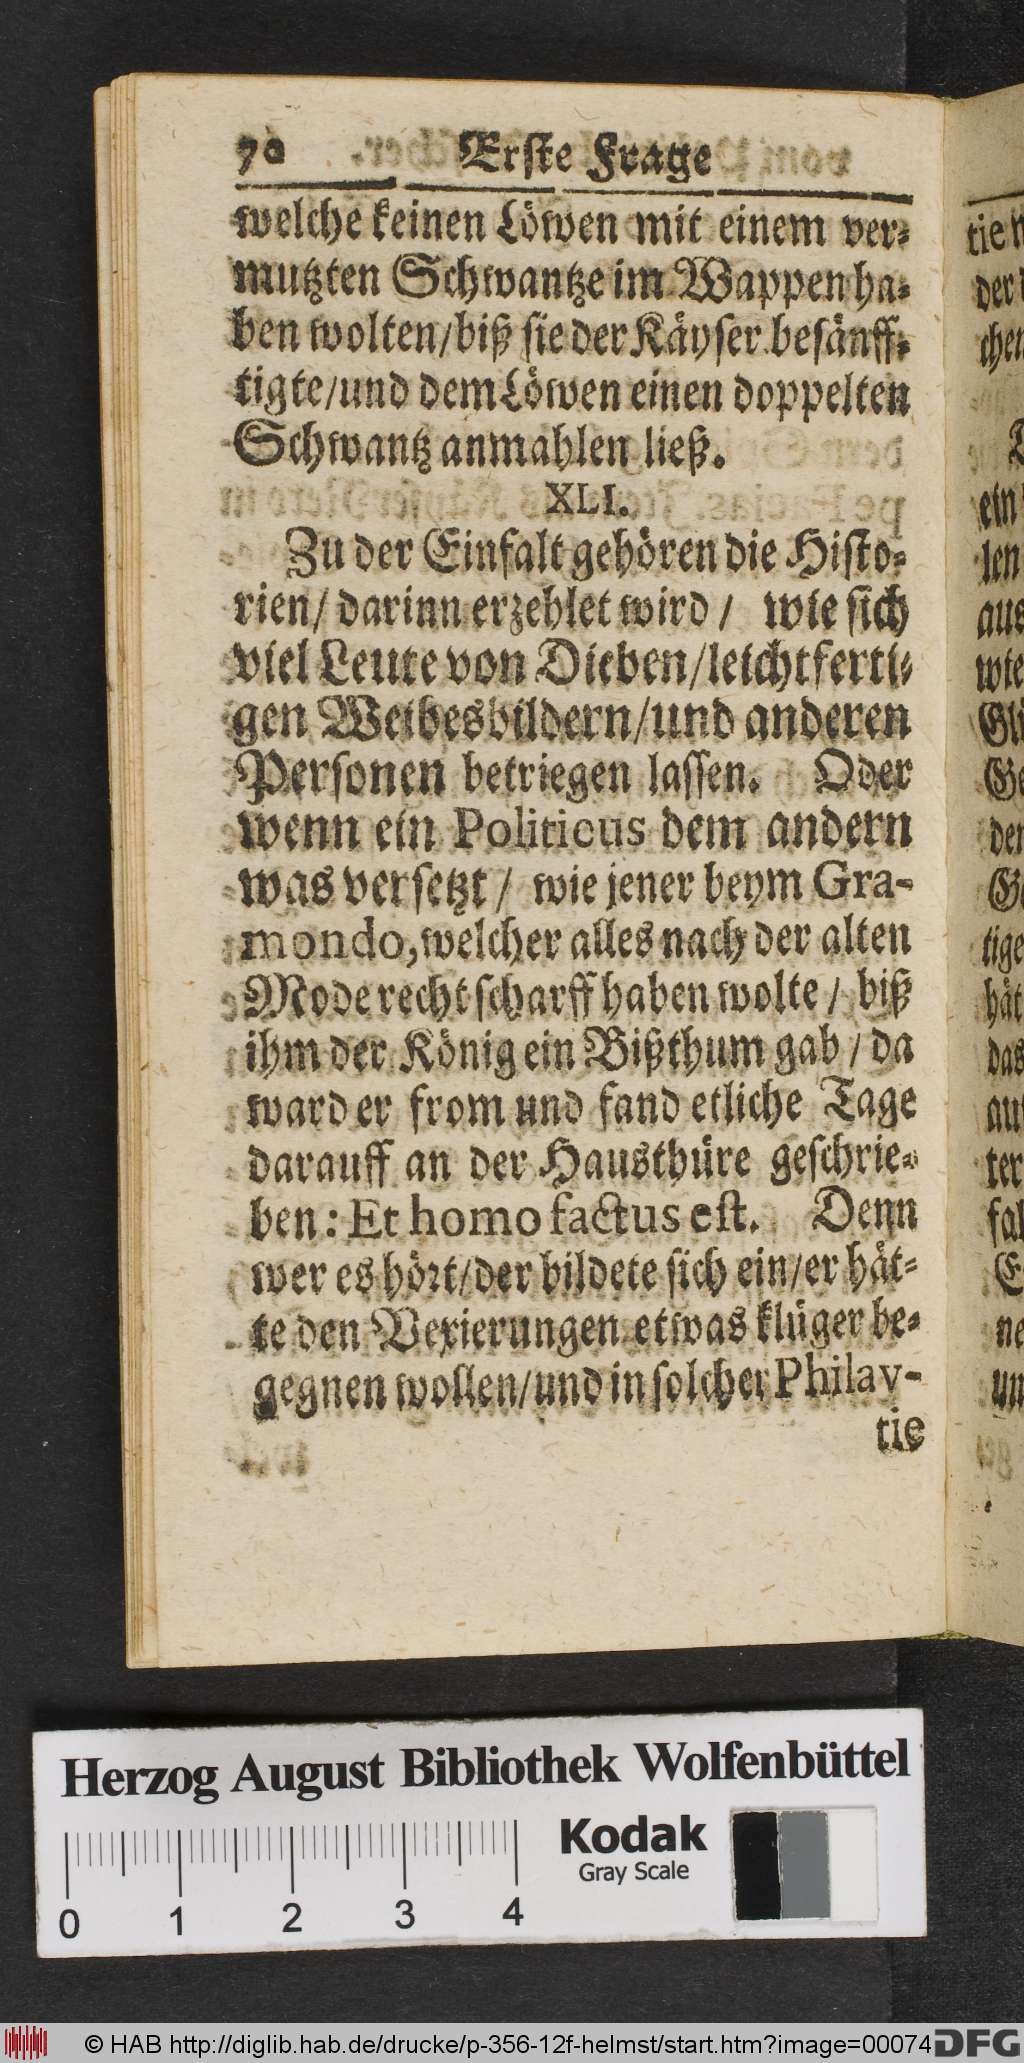 70 Erste Frage
welche keinen Löwen mit einem ver-
mutzten Schwantze im Wappen ha-
ben wolten/ biß sie der Käyser besänff-
tigte/ und dem Löwen einen doppelten
Schwantz anmahlen ließ.
XLI.
Zu der Einfalt gehören die Histo-
rien/ darinn erzehlet wird/ wie sich
viel Leute von Dieben/ leichtferti-
gen Weibesbildern/ und anderen
Personen betriegen lassen. Oder
wenn ein Politicus dem andern
was versetzt/ wie jener beym Gra-
mondo, welcher alles nach der alten
Mode recht scharff haben wolte/ biß
ihm der König ein Bißthum gab/ da
ward er from und fand etliche Tage
darauff an der Hausthüre geschrie-
ben: Et homo factus est. Denn
wer es hört/ der bildete sich ein/ er hät-
te den Vexierungen etwas klüger be-
gegnen wollen/ und in solcher Philav-
tie
tie
der
chen
ein
len
aus
wie
Gli
Ge
der
Ge
tige
hät
das
auf
ter
fal
E
ne
un
Herzog August Bibliothek Wolfenbüttel
Kodak
Gray Scale
0 1 2 3 4
© HAB http://diglib.hab.de/drucke/p-356-12f-helmst/start.htm?image=00074
DFG